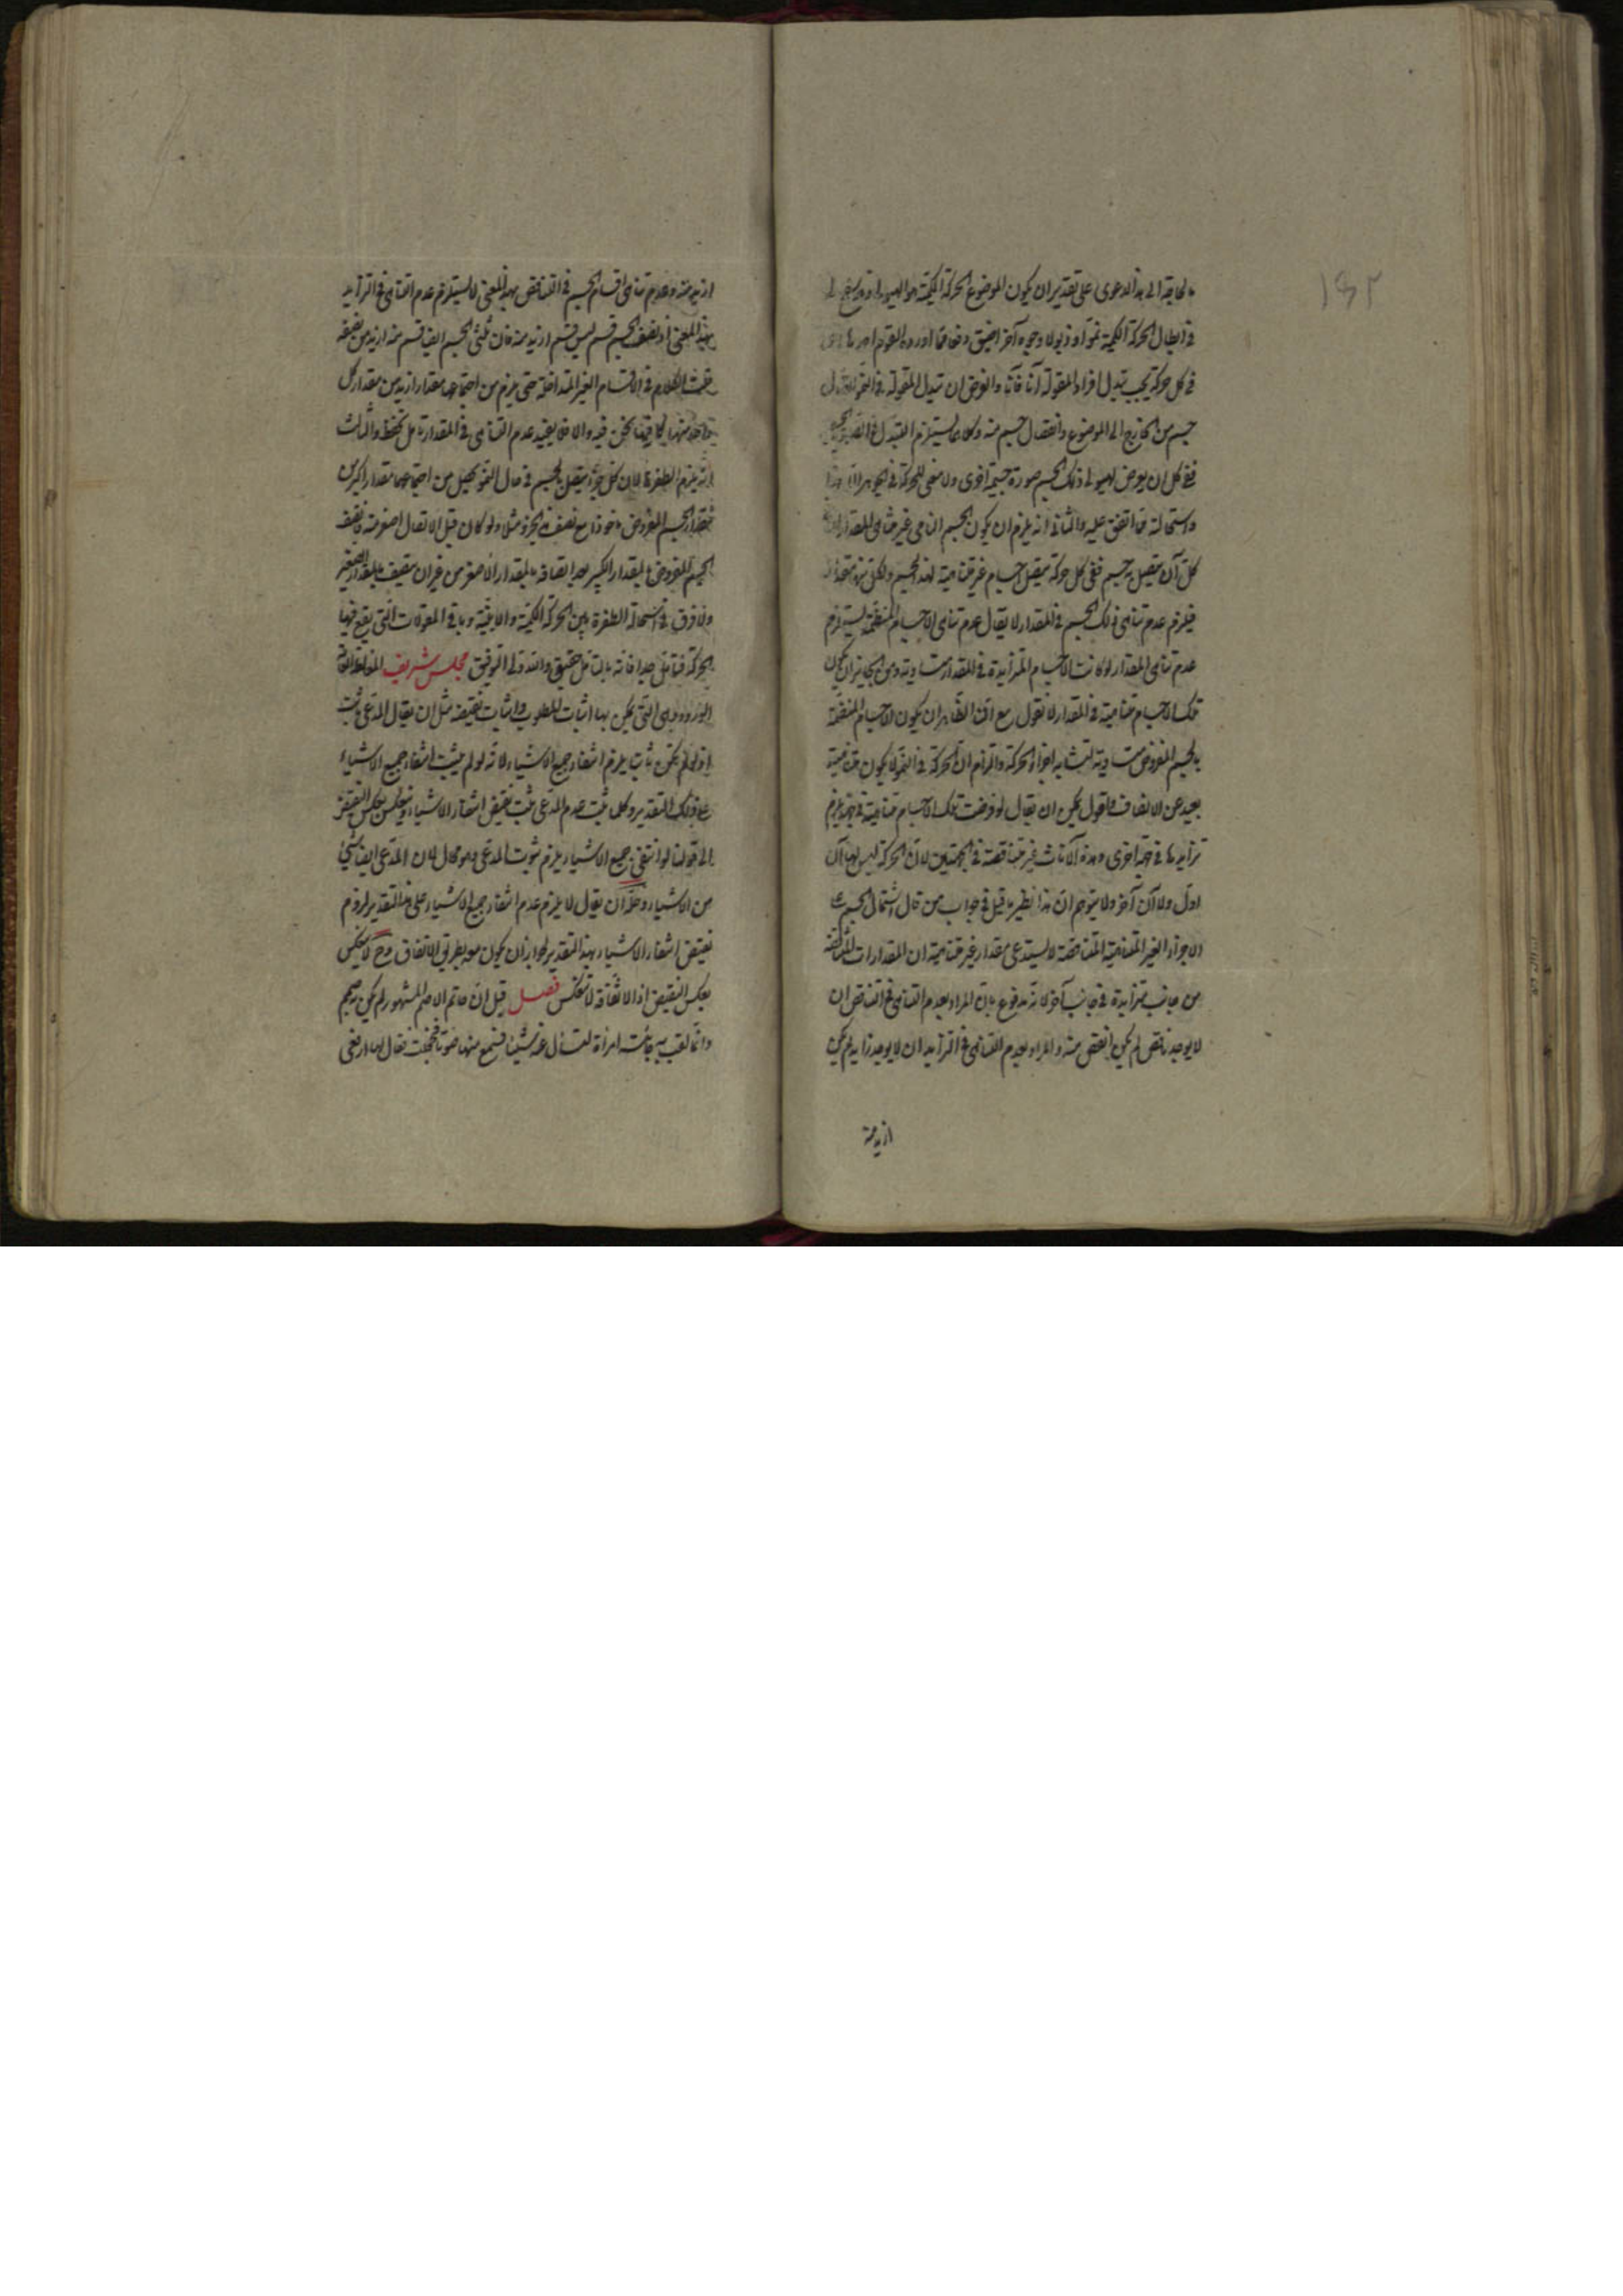 ۱۴۲
الى هذا الدعوى على تقدير ان يكون الموضوع الحركة الكمية هو الهيولى وقد سنح لى
فى ابطال الحركة الكمية نموا وذبولا وجوه آخر ادق مما اورده القوم احدها
فى كل حركة يجب تبدل افراد المقولة آنا فآنا والفرض ان تبدل المقولة فى النمو
جسم من الخارج الى الموضوع وانفصال جسم منه وكلاهما يستلزم التبدل فى
ففى كل ان يعرض لهيولى ذلك الجسم صورة جسمية اخرى ولا معنى للحركة فى الجوهر الا هذا
واستحالته مما اتفق عليه والثانى انه يلزم ان يكون الجسم النامى غير متناهى المقدار
كل آن يتصل به جسم ففى كل حركة يتصل اجسام غير متناهية لهذا الجسم ولكل منها مقدار
فيلزم عدم تناهى ذلك الجسم فى المقدار لا يقال عدم تناهى الاجسام المنضمة يستلزم
عدم تناهى المقدار لو كانت الاجسام المتزايدة فى المقدار متساوية ومن الجائز ان يكون
تلك الاجسام متناهية فى المقدار لا نقول مع ان الظاهر ان يكون الاجسام المنضمة
بالجسم المفروض متساوية لتشابه اجزاء الحركة والتزام ان الحركة فى النمو لا يكون متشابهة
بعيد عن الانصاف فاقول يمكن ان يقال لو فرضت تلك الاجسام متناهية فى جهة يلزم
تزايدها فى جهة اخرى وهذه الآنات غير متناقصة فى الجهتين لان الحركة ليس لها آن
اول ولا آن آخر ولا يتوهم ان هذا نظير ما قيل فى جواب من قال اشتمال الجسم على
الاجزاء الغير المتناهية المتناقصة لا يستدعى مقدار غير متناهية ان المقدارات المتناقصة
من جانب متزايدة فى جانب آخر لانه مدفوع بان المراد بعدم التناهى فى التناقص ان
لا يوجد ناقص لم يكن انقص منه والمراد بعدم التناهى فى التزايد ان لا يوجد زايد لم يكن
ازيد منه
ازيد منه وعدم تناهى اقسام الجسم فى التناقص بهذا المعنى لا يستلزم عدم التناهى فى التزايد
بهذا المعنى اذ لنصف الجسم قسم ليس قسم ازيد منه فان ثلثى الجسم ايضا قسم منه ازيد من نصفه
قلت الكلام فى الاقسام الغير المتداخلة حتى يلزم من اجتماعها مقدار ازيد من مقدار كل
واحد منها كما فيما نحن فيه والا فلا يفيد عدم التناهى فى المقدار تامل تحفظ والثالث
انه يلزم الطفرة لان كل جزء يتصل بالجسم فى حال النمو يحصل من اجتماعهما مقدار اكبر من
مقدار الجسم المفروض ماخوذا مع نصف ذى الجزء مثلا ولو كان قبل الاتصال اصغر منه فاتصف
الجسم المفروض بالمقدار الكبير بعد اتصافه بالمقدار الاصغر من غير ان يتصف بالمقدار الصغير
ولا فرق فى استحالة الطفرة بين الحركة الكمية والاينية وباقى المقولات التى يقع فيها
الحركة فتامل جدا فانه بالتامل حقيق والله ولى التوفيق مجلس شريف المغالطة العامة
الورود وهى التى يمكن بها اثبات المطلوب واثبات نقيضه مثل ان يقال المدعى ثابت
اذ لو لم يكن ثابت يلزم انتفاء جميع الاشياء لانه لو لم يثبت انتفاء جميع الاشياء
على ذلك التقدير وكلما ثبت عدم المدعى ثبت نقيض انتفاء الاشياء وينعكس بعكس النقيض
الى قولنا لو انتفى جميع الاشياء يلزم ثبوت المدعى وهو محال لان المدعى ايضا شىء
من الاشياء وحله ان يقال لا يلزم عدم انتفاء جميع الاشياء على هذا التقدير لزوم
نقيض انتفاء الاشياء بهذا التقدير لجواز ان يكون معه بطريق الاتفاق وح لا ينعكس
بعكس النقيض اذ الاتفاقية لا تنعكس فصل قيل ان حاتم الاصم المشهور لم يكن به صمم
وانما لقب به جائته امرأة لتسأل عنه شيئا فسمع منها صوتا فخجلت فقال لها ارفعى